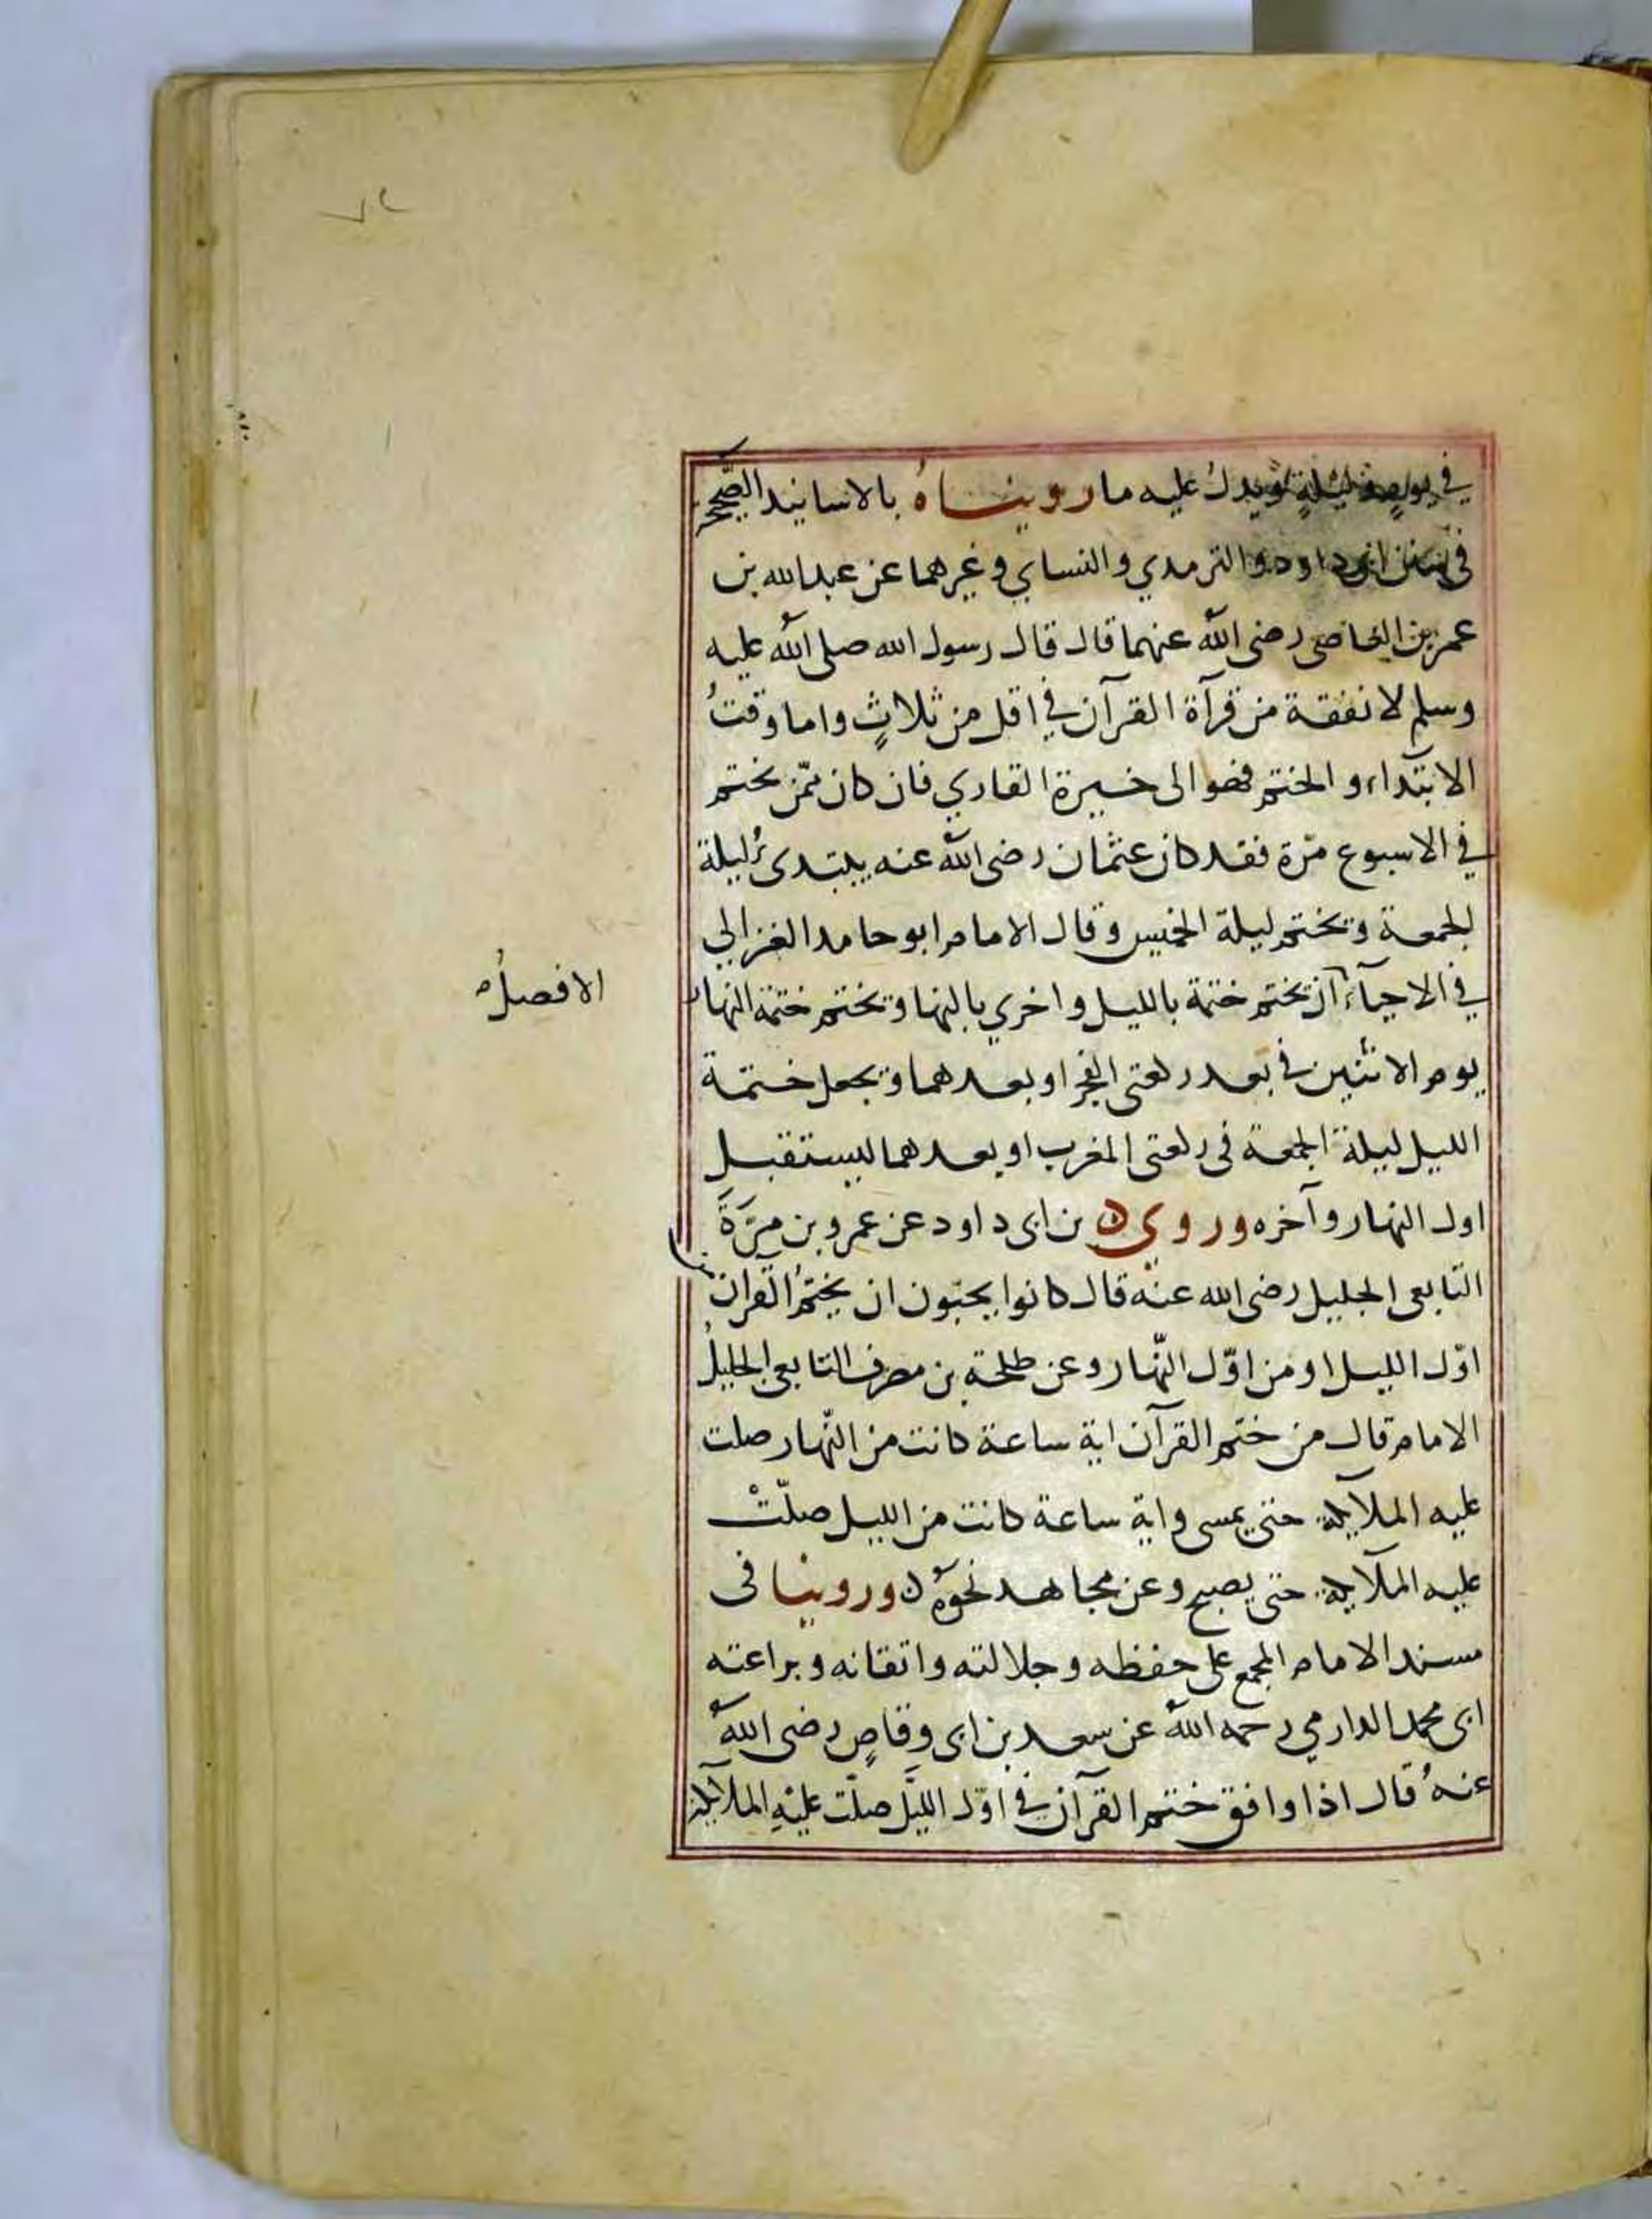 ٧٢
في يوم وليلة ويدل عليه ما رويناهُ بالاسانيد الصّحيحة
في سنن ابى داود والترمدي والنساي وغيرهما عن عبد الله بن
عمر بن العاصى رضى الله عنهما قال قال رسول الله صلى الله عليه
وسلم لا نفقة من قرآة القرآن في اقل من ثلاثٍ واما وقتُ
الابتداء والختم فهو الى خيرة القاري فان كان ممّن يختم
في الاسبوع مرّة فقد كان عثمان رضى الله عنه يبتدىُ ليلة
الجمعة ويختم ليلة الخميس وقال الامام ابو حامد الغزالي
الافضلُ
في الاحيآء ان يختم ختمة بالليل واخري بالنها ويختم ختمة النهار
يوم الاثنين في بعد ركعتى الفجر او بعدهما ويجعل ختمة
الليل ليلة الجمعة فى ركعتى المغرب او بعدهما ليستقبل
اول النهار وآخره وروى ابن ابى داود عن عمرو بن مرّةَ
التابعى الجليل رضى الله عنه قال كانوا يحبّون ان يختمُ القران
اوّل الليل او من اوّل النّهار وعن طلحة بن مصرف التابعى الجليلُ
الامام قال من ختم القرآن اية ساعة كانت من النّهار صلت
عليه الملآيكة حتى يمسى واية ساعة كانت من الليل صلّتْ
عليه الملآيكة حتى يصبح وعن مجاهد نحوَهُ وروينا فى
مسند الامام المجمع على حفظه وجلالته واتقانه وبراعته
ابى محمد الدارمي رحمه الله عن سعد بن ابى وقاصٍ رضى الله
عنهُ قال اذا وافق ختم القرآن في اوّل الليَّل صلّت عليْهِ الملآيكة